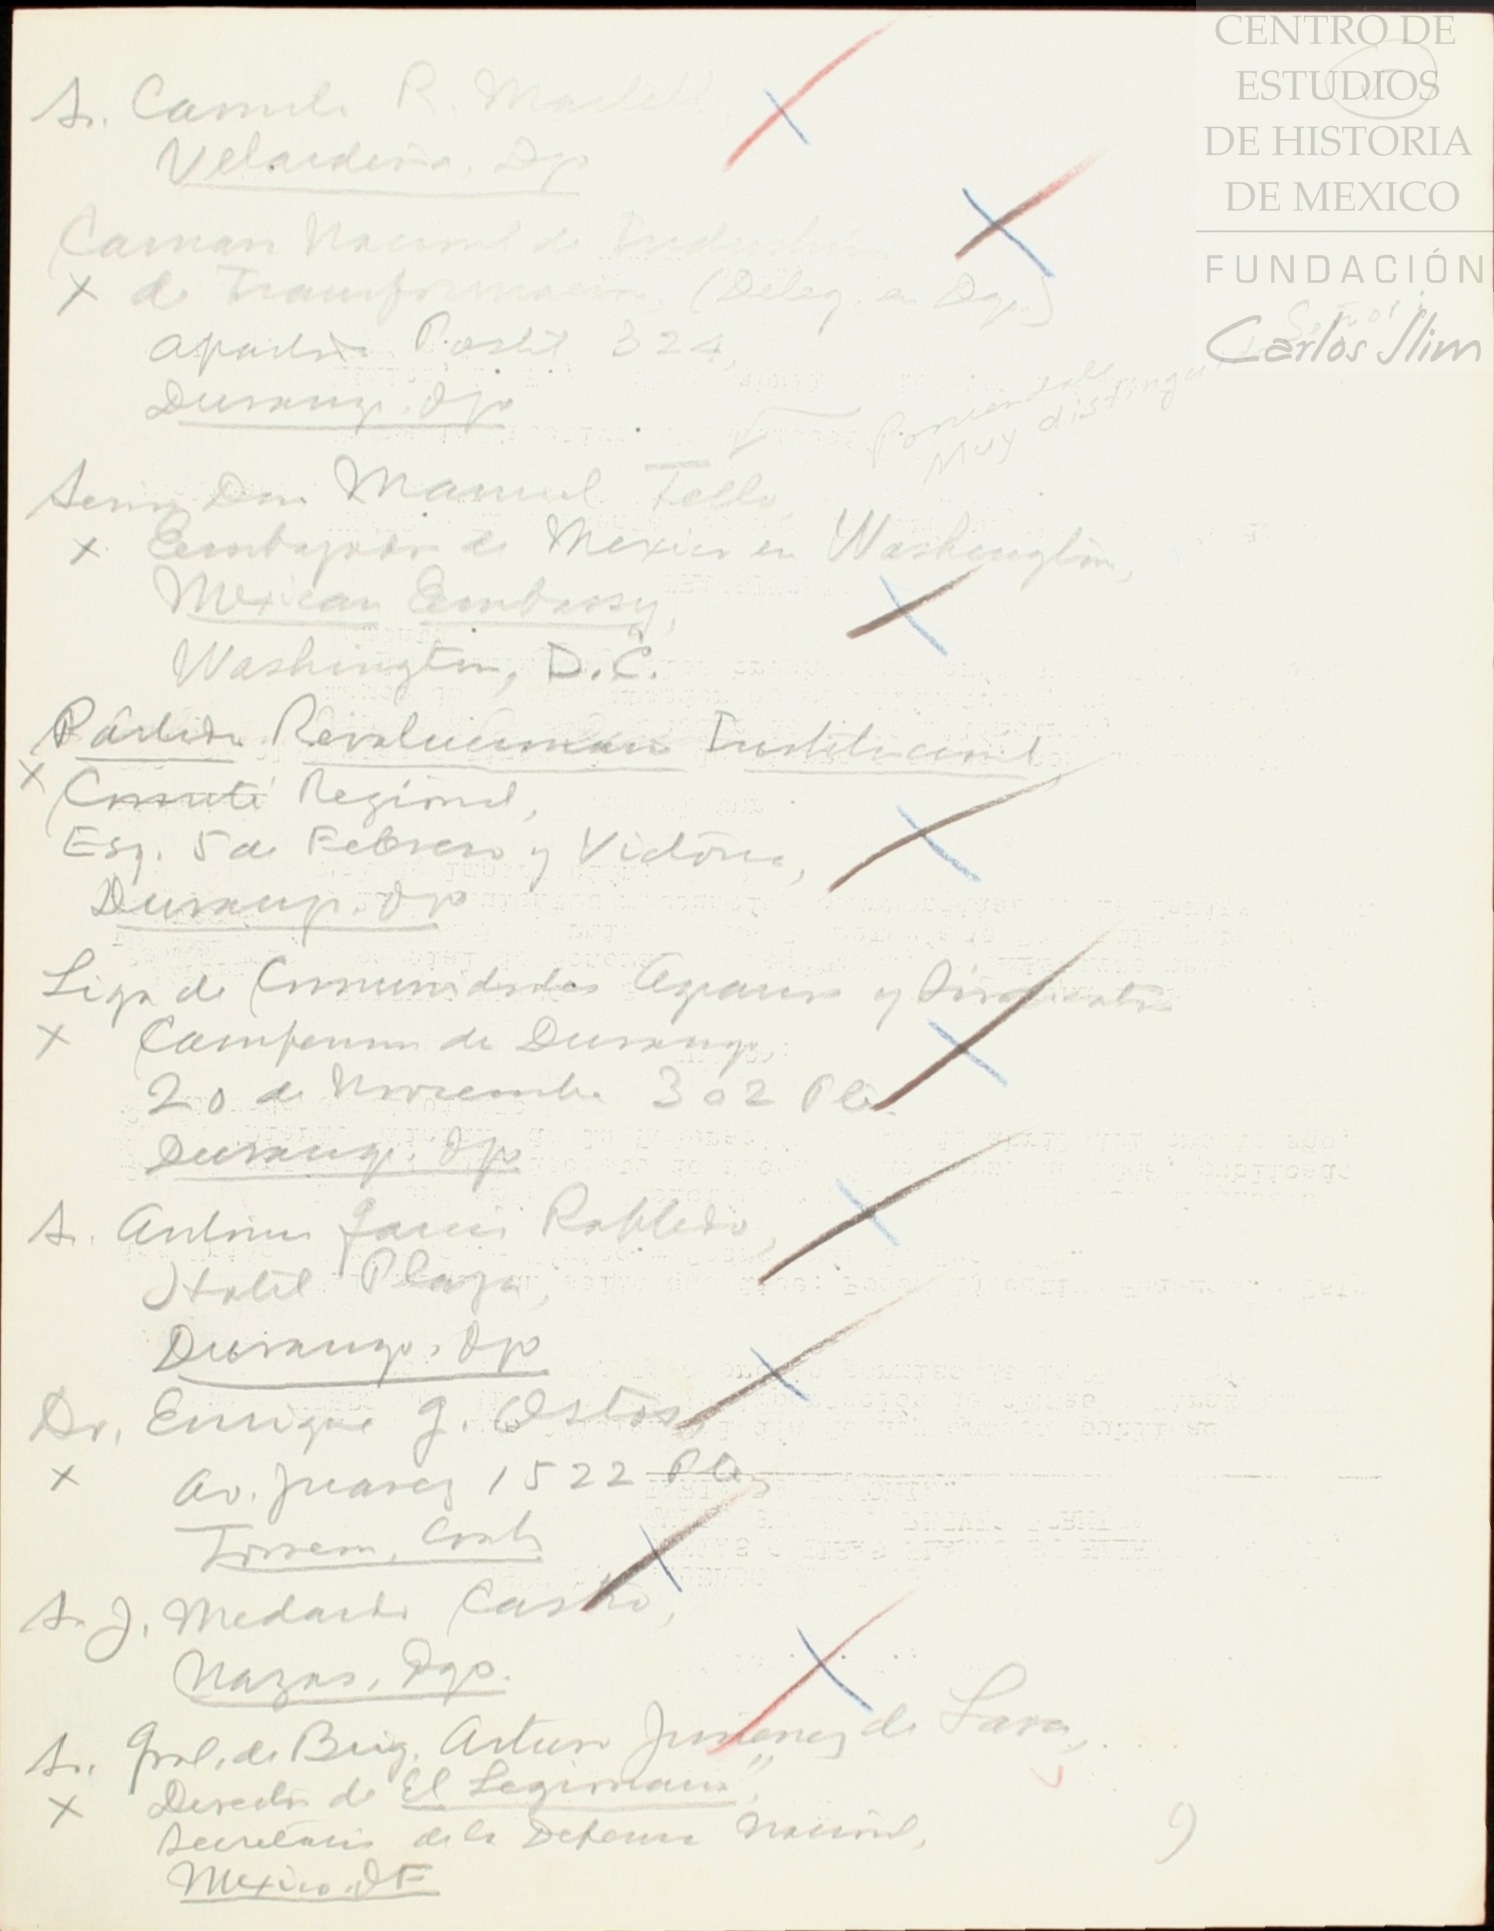 CENTRO DE
ESTUDIOS
DE HISTORIA
DE MEXICO
FUNDACIÓN
Carlos Slim
Sr. Camilo R.
Velardeña, Dgo
Camara Nacional de Industria
x de Transformación, (Deleg. en Dgo.)
Apartado Postal 324,
Durango, Dgo
Muy disting
Señor Don Manuel Tello,
x Embajador de Mexico en Washington,
Mexican Embassy,
Washington, D.C.
Partido Revolucionario Institucional
x Comité Regional,
Esq. 5 de Febrero y Victoria,
Durango, Dgo
Liga de Comunidades Agrarias y Sindicatos
x Campesinos de Durango,
20 de Noviembre 302 Pte.
Durango, Dgo
Sr. Antonio Garcia Robledo,
Hotel Plaza,
Durango, Dgo
Dr. Enrique G. Ostos,
x Av. Juarez 1522 Pte,
Torreon, Coah
Sr. J. Medardo Castro,
Nazas, Dgo.
Sr. Gral. de Brig. Arturo Jimenez de Lara,
x Director de El Legionario",
Secretaria de la Defensa Nacional,
Mexico, DF
9